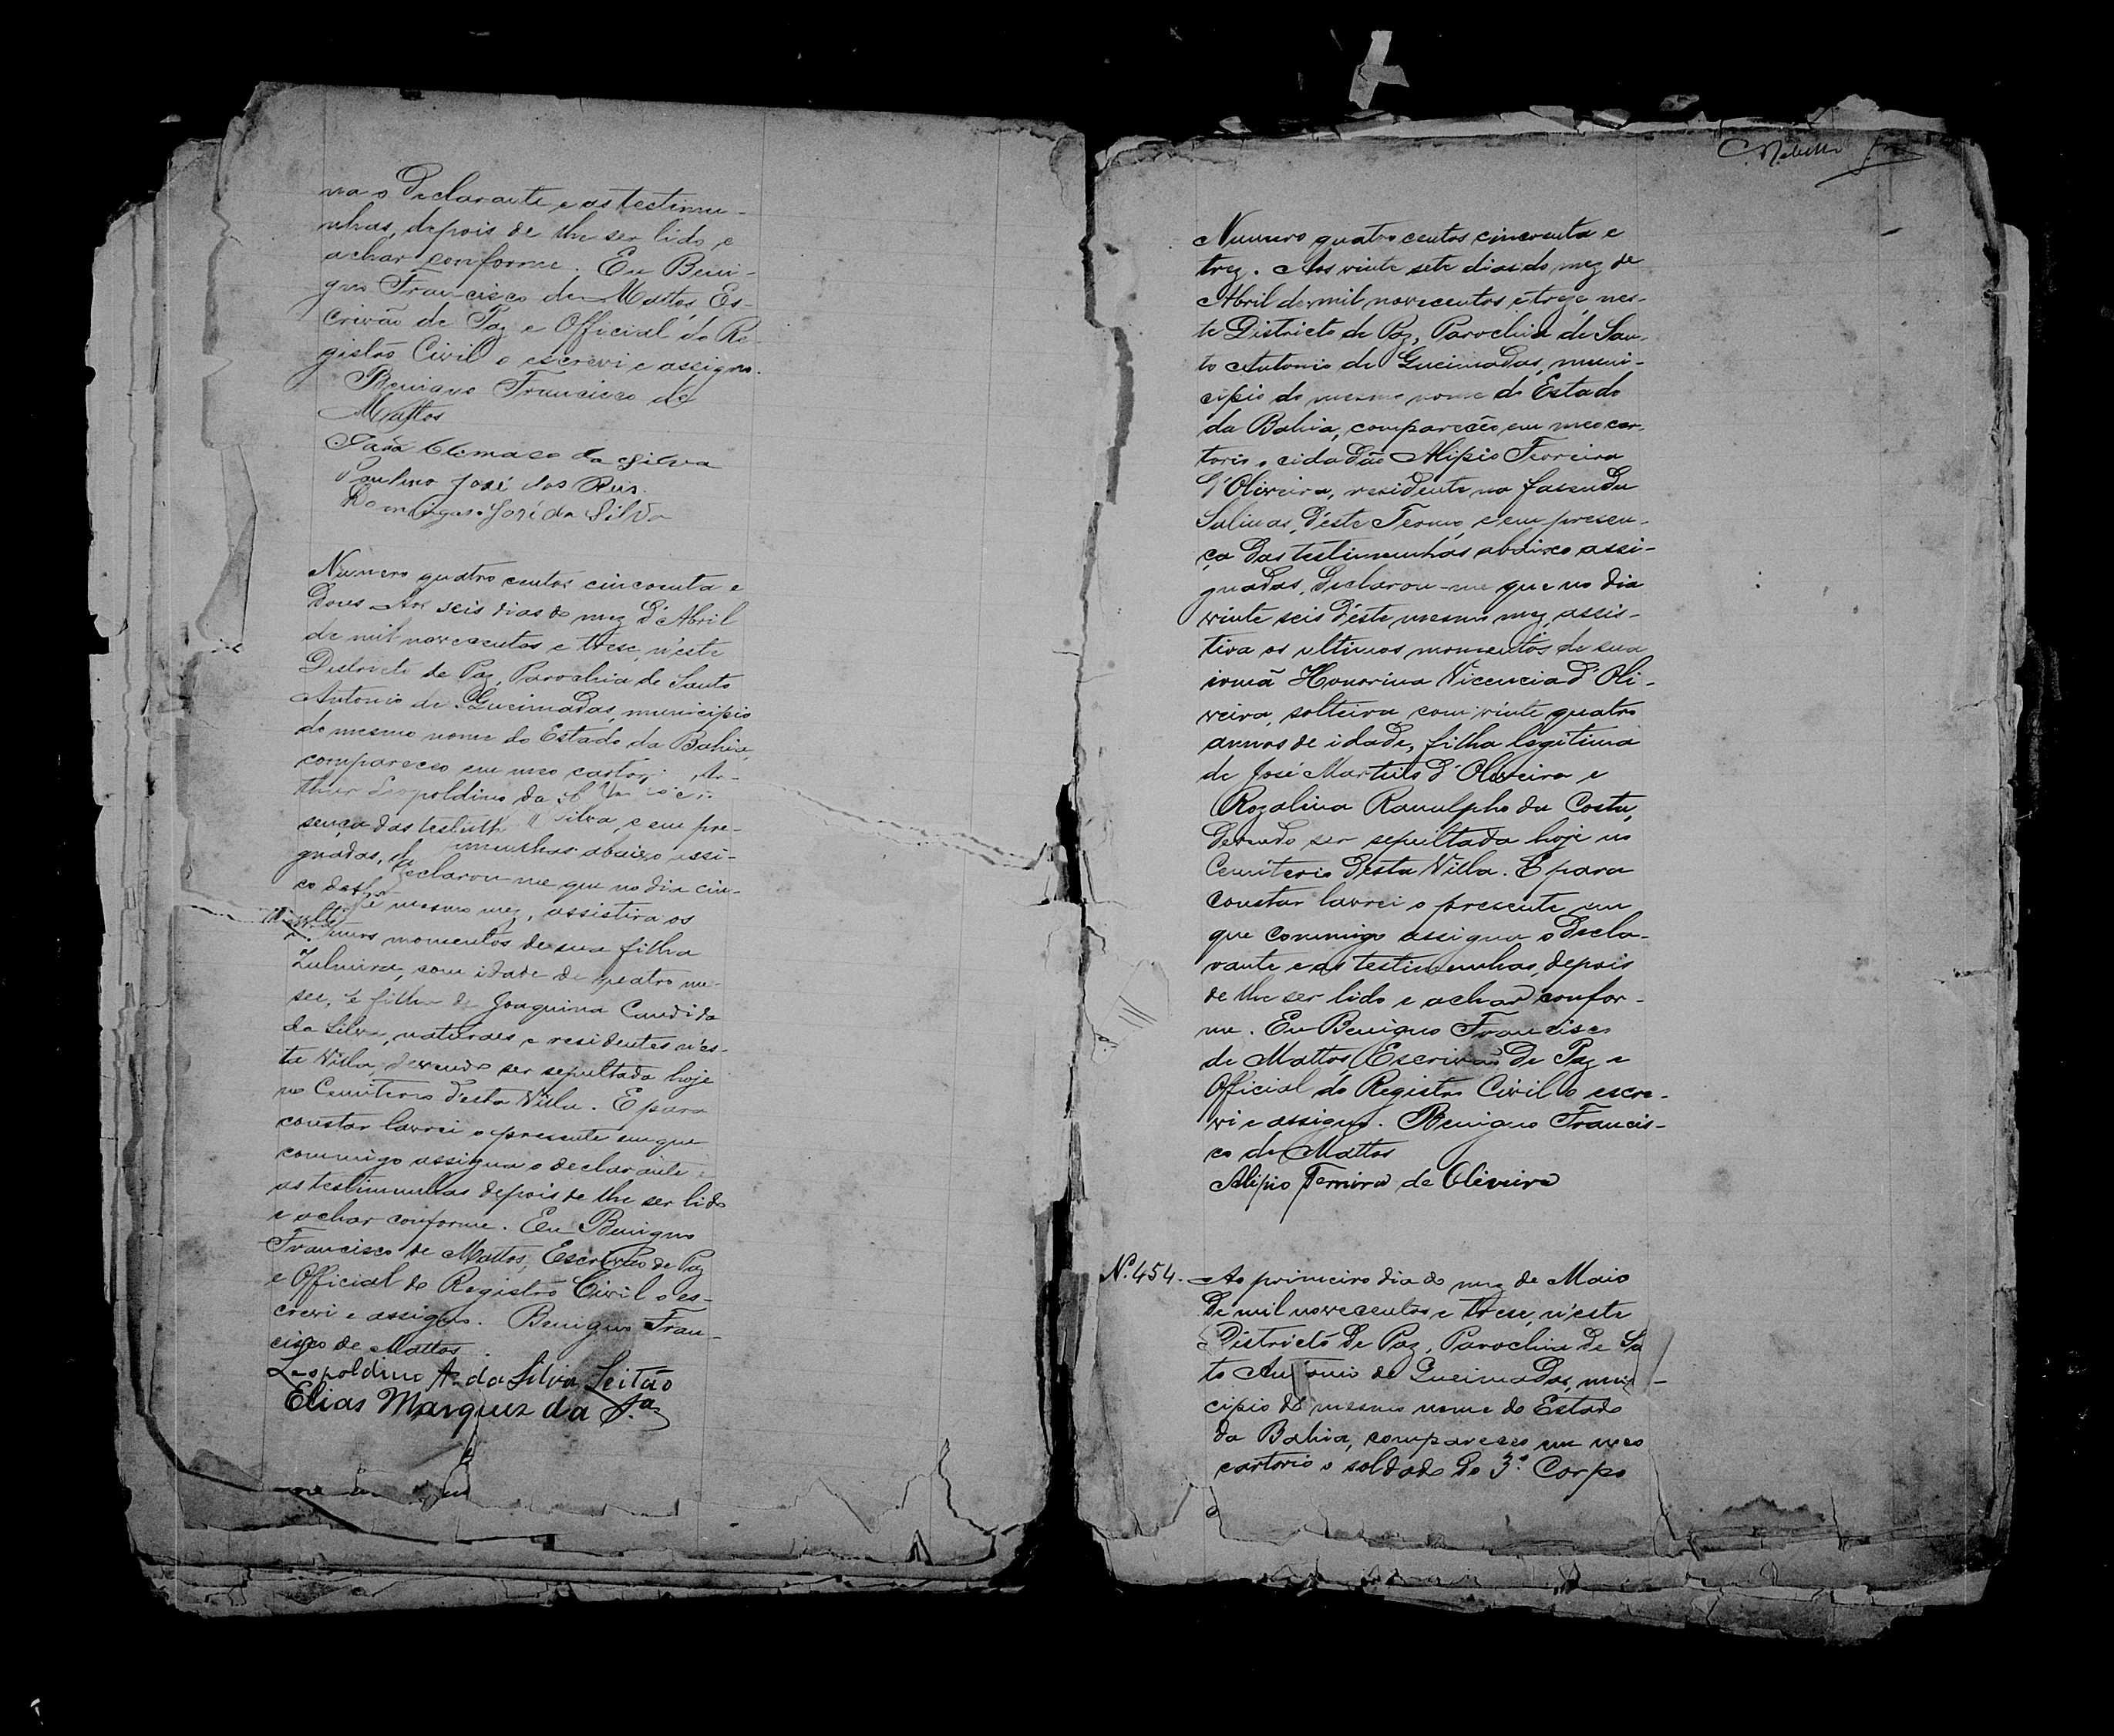 na o Declarante e as testimu-
nhas, depois de lhe ser lido e
achar conforme. Eu Beni-
gno Francisco de Mattos, Es-
crivão de Paz e Official do Re
gistro Civil o escrevi e assigno.
Benigno Francisco de
Mattos
João Climaco da Silva
Paulino José dos Reis.
Domingos José da Silva
Numero quatro centos cincoenta e
Dous. Aos seis dias do mez d'Abril
de mil novecentos e trese, n'este
Districto de Paz, Parochia de Santo
Antonio de Queimadas, municipio
do mesmo nome do Estado da Bahia,
compareceo em meo cartor Ar-
thur Leopoldino da
sença das test Silva, e em pre-
munhas abaixo assi-
gnadas, declarou-me que no dia cin-
co deste mesmo mez, assistira os
ultimos momentos de sua filha
Zulmira, com idade de quatro me-
ses, e filha de Joaquina Candida
da Silva, naturaes e residentes n'es-
ta Villa, devendo ser sepultada hoje
no Cemiterio d'esta Villa. E para
constar lavrei o presente em que
commigo assigna o declarante e
as testimunhas depois de lhe ser lido
e achar conforme. Eu Benigno
Francisco de Mattos, Escrivão de Paz
e Official do Registro Civil o es-
crevi e assigno. Benigno Fran-
cisco de Mattos
Leopoldino A. da Silva Leitão
Elias Marques da S.ª
Numero quatro centos cincoenta e
trez. Aos vinte sete dias do mez de
Abril de mil novecentos e treze, nes-
te Districto de Paz, Parochia de San-
to Antonio de Queimadas, muni-
cipio do mesmo nome do Estado
da Bahia, compareceo em meo car-
torio o cidadão Alipio Ferreira
d'Oliveira, residente na fasenda
Salinas, d'este Termo, e em presen-
ça das testimunhas abaixo assi-
gnadas, declarou-me que no dia
vinte seis d'este mesmo mez, assis-
tira os ultimos momentos de sua
irmã Honorina Vicencia d'Oli-
veira, solteira, com vinte quatro
annos de idade, filha legitima
de José Martins d'Oliveira e
Rozalina Ranulpho da Costa,
devendo ser sepultada hoje no
Cemiterio desta Villa. E para
constar lavrei o presente em
que commigo assigna o decla-
rante e as testimunhas, depois
de lhe ser lido e achar confor-
me. Eu Benigno Francisco
de Mattos, Escrivão de Paz e
Official do Registro Civil o escre-
vi e assigno. Benigno Francis-
co de Mattos
Alipio Ferreira de Oliveira
Nº 454. Ao primeiro dia do mez de Maio
de mil novecentos e trese, n'este
Districto de Paz, Parochia de Sa
to Antonio de Queimadas, muni-
cipio do mesmo nome do Estado
da Bahia, compareceo em meo
cartorio o soldado do 3º Corpo